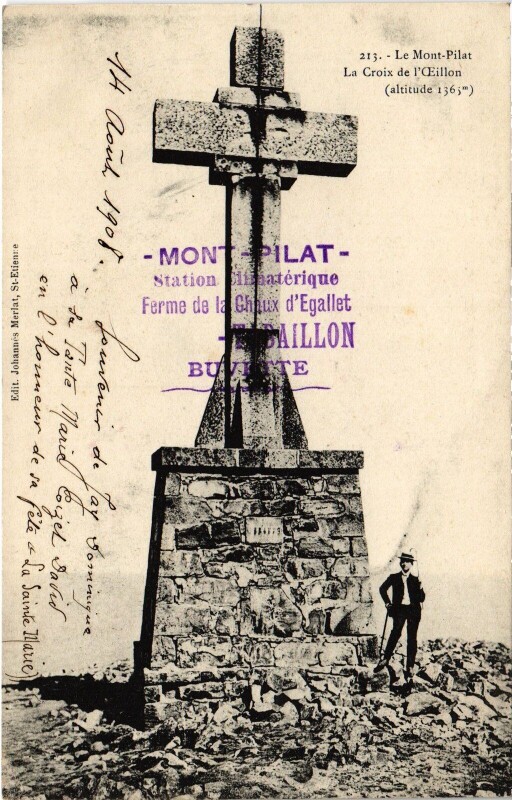 213. - Le Mont-Pilat
La Croix de l'Œillon
(altitude 1365m)
- MONT-PILAT -
Station Climatérique
Ferme de la Chaux d'Egallet
BAILLON
BUVETTE
Edit. Johannès Merlat, St-Etienne
14 Août 1908.
Souvenir de Dominique
à sa Tante Marie David
en l'honneur de sa fête (La Sainte Marie)